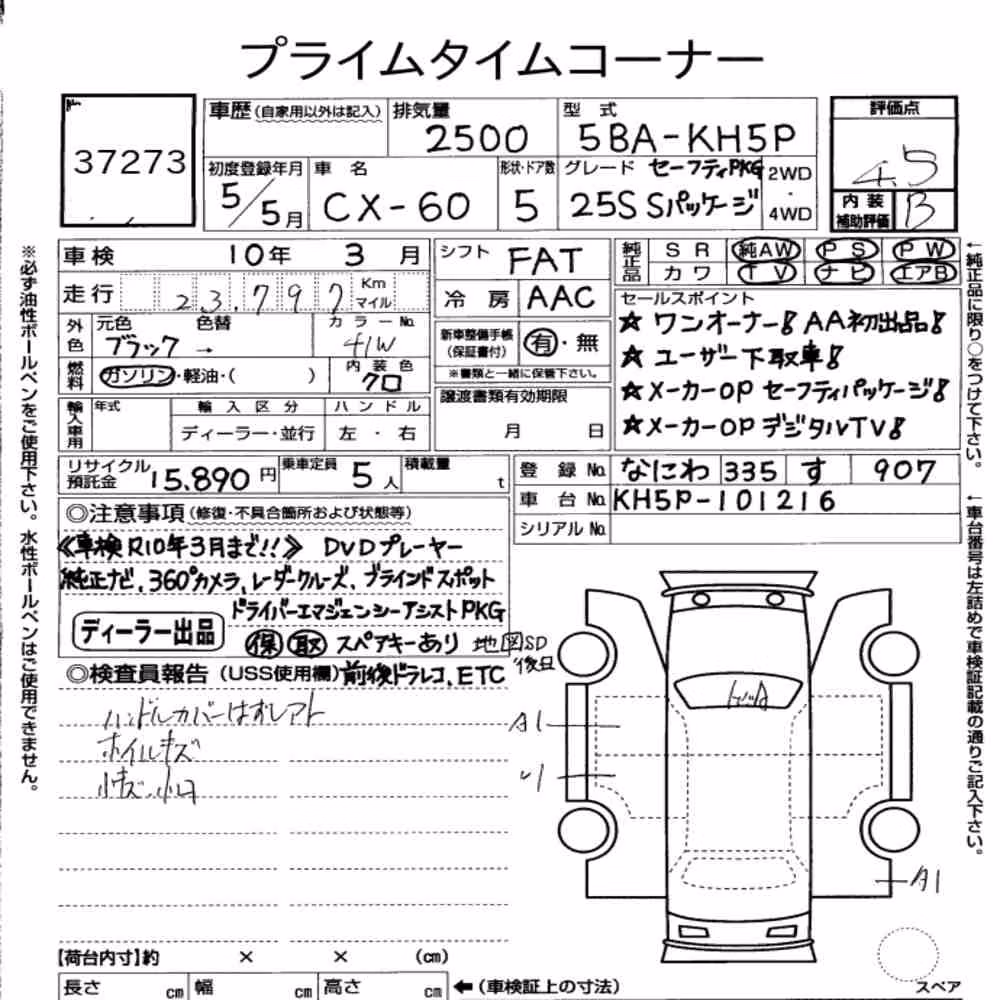 プライムタイムコーナー
37273
車歴 (自家用以外は記入) 排気量 2500 型 式 5BA-KH5P
評価点 4.5
初度登録年月 5/5月 車 名 CX-60 形状・ドア数 5 グレード セーフティPKG 25S Sパッケージ 2WD ・ 4WD
内 装 補助評価 B
車検 10年 3月 シフト FAT
純正品 S R 純AW P S P W
カワ T V ナビ エアB
走行 23,797 Km マイル 冷 房 AAC
セールスポイント
★ ワンオーナー! AA初出品!
★ ユーザー下取車!
★メーカーOP セーフティパッケージ!
★メーカーOP デジタルTV!
外色 元色 ブラック 色替 → カラーNo. 41W
新車整備手帳 (保証書付) 有・無
※書類と一緒に保管下さい。
燃料 ガソリン・軽油・( ) 内 装 色 クロ
譲渡書類有効期限
月 日
輸入車用 年式 輸 入 区 分 ハ ン ド ル
ディーラー・並行 左 ・ 右
リサイクル預託金 15.890 円 乗車定員 5人 積載量 t
登 録 No. なにわ 335 す 907
車 台 No. KH5P-101216
シリアル No.
◎注意事項 (修復・不具合箇所および状態等)
《車検R10年3月まで!!》 DVDプレーヤー
純正ナビ、360°カメラ、レーダークルーズ、ブラインドスポット
ドライバーエマジェンシーアシストPKG
ディーラー出品 保 取 スペアキーあり 地図SD後日
◎検査員報告 (USS使用欄) 前後ドラレコ、ETC
ハンドルカバーはずしアト
ホイルキズ
小キズ・小凹
A1
A1
【荷台内寸】約 × × (cm)
長さ cm 幅 cm 高さ cm ←(車検証上の寸法)
スペア
※必ず油性ボールペンをご使用下さい。水性ボールペンはご使用できません。
←純正品に限り○をつけて下さい。
←車台番号は左詰めで車検証記載の通りご記入下さい。